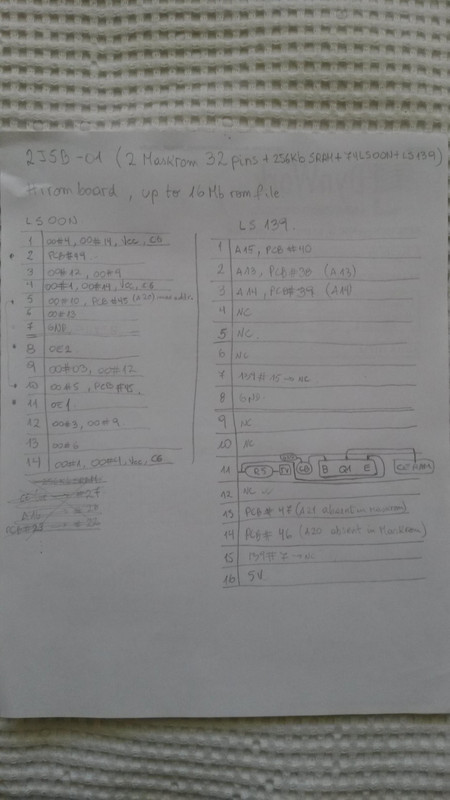 2JSB-01 (2 Maskrom 32 pins + 256Kb SRAM + 74LS00N + LS139)
Hirom board, up to 16 Mb rom file
LS00N
1 00#4, 00#14, Vcc, C6
2 PCB#49
3 00#12, 00#9
4 00#1, 00#14, Vcc, C6
5 00#10, PCB#45 (A20)
6 00#13
7 GND
8 OE2
9 00#03, 00#12
10 00#5, PCB#45
11 OE1
12 00#3, 00#9
13 00#6
14 00#1, 00#4, Vcc, C6
#27
PCB#
LS 139
1 A15, PCB#40
2 A13, PCB#38 (A13)
3 A14, PCB#39 (A14)
4 NC
5 NC
6 NC
7 139#15 → NC
8 GND
9 NC
10 NC
11 R5 B Q1 E
12 NC
13 PCB#47 (A21 absent in maskrom)
14 PCB#46 (A20 absent in Maskrom)
15 139#7 → NC
16 5V